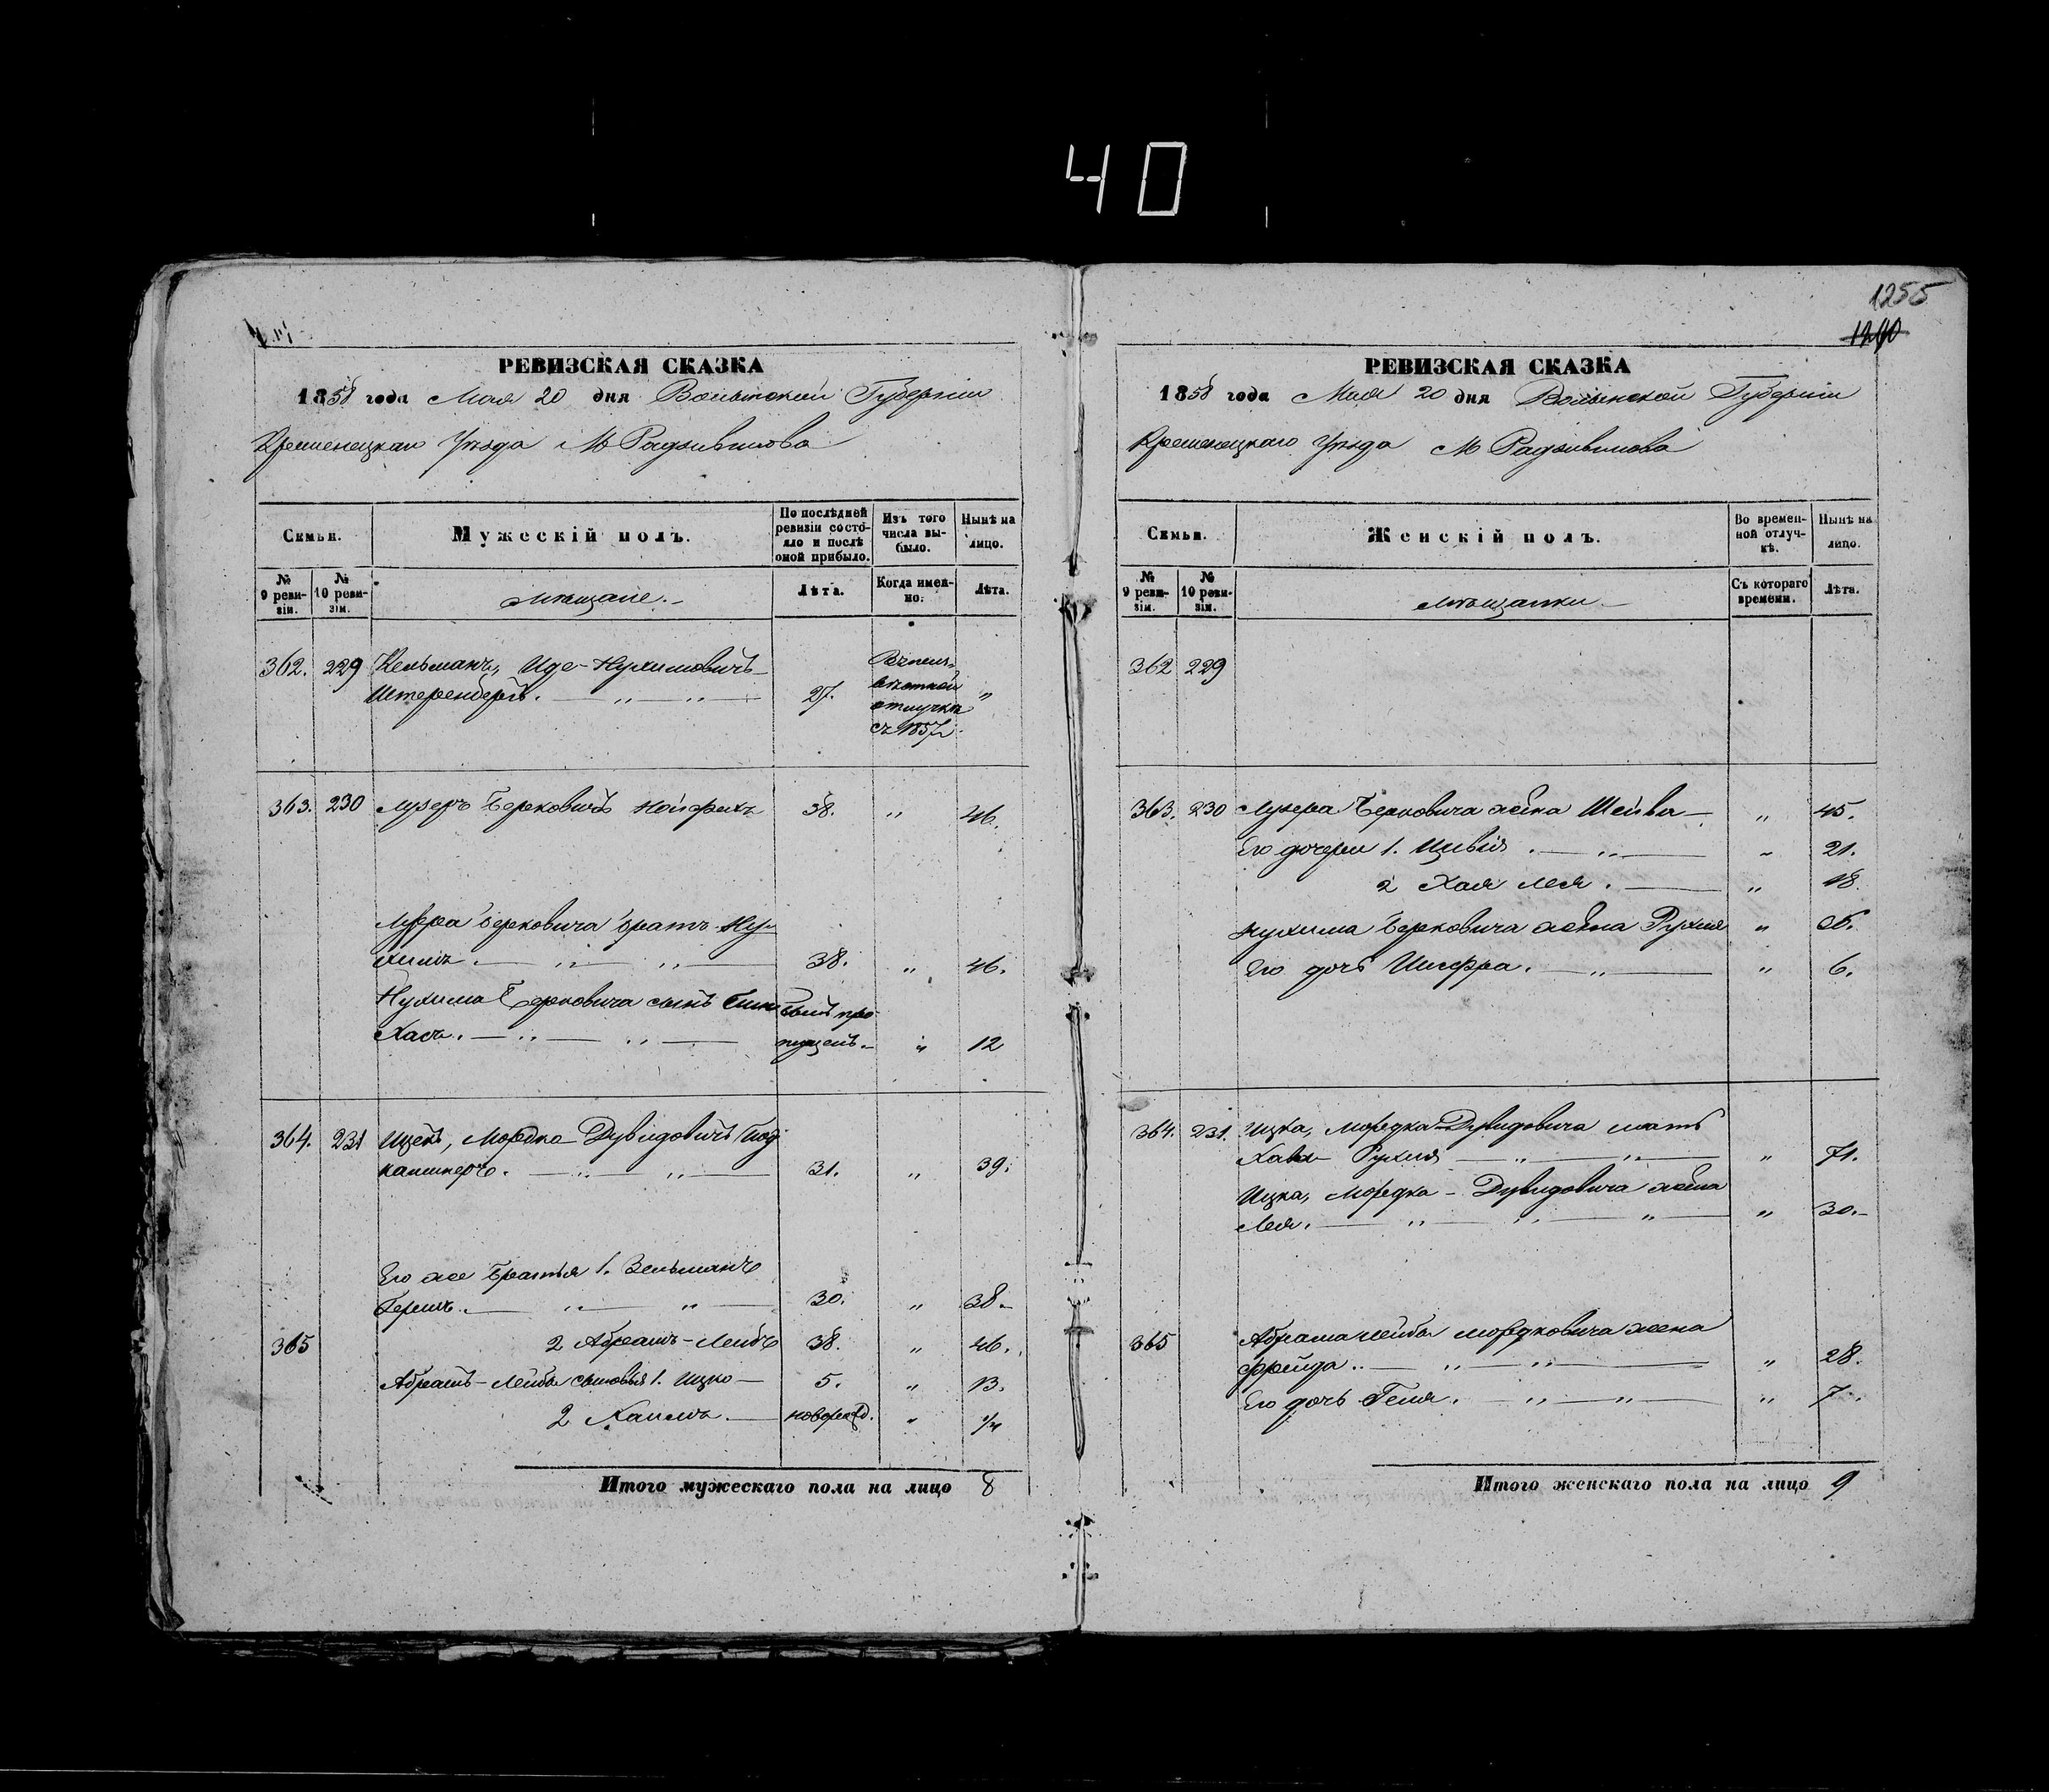 40
1255
1240
РЕВИЗСКАЯ СКАЗКА
1858 года Мая 20 дня Волынской Губерніи
Кременецкаго Уѣзда М Радзивилова
Семьи.
Мужескій полъ.
По послѣдней ревизіи состояло и послѣ оной прибыло.
Изъ того числа выбыло.
Нынѣ на лицо.
№ 9 ревизіи.
№ 10 ревизіи.
Мѣщане.
Лѣта.
Когда именно.
Лѣта.
362. 229 Кельманъ, Иде-Нухимовичъ
Штеренбергъ. 27. "
отлучкѣ
съ 1857
363. 230 Лузеръ Берковичъ 38. " 46.
Лузера Берковича братъ Ну-
химъ. 38. " 46.
Нухима Берковича сынъ Пин- былъ про-
хасъ. пущенъ. " 12
364. 231 Ицекъ, Мордко Дувидовичъ Под-
каминеръ. 31. " 39.
Его же братья 1. Зельманъ
Гершъ. 30. " 38.
365 2 Абрамъ-Лейбъ 38. " 46.
Абрамъ-Лейбы сыновья 1. Ицко 5. " 13.
2 Хаимъ. новорожд. " 1/4
Итого мужескаго пола на лицо 8
РЕВИЗСКАЯ СКАЗКА
1858 года Мая 20 дня Волынской Губерніи
Кременецкаго Уѣзда М Радзивилова
Семьи.
Женскій полъ.
Во временной отлучкѣ.
Нынѣ на лицо.
№ 9 ревизіи.
№ 10 ревизіи.
Мѣщанки
Съ котораго времени.
Лѣта.
362 229
363. 230 Лузера Берковича жена Шейва " 45.
Его дочери 1. Цивія " 21.
2 Хая Лея. " 18
Нухима Берковича жена Рухля "
Его дочь Шифра. " 6.
364. 231. Ицка, Мордка Дувидовича мать
Хава Рухля " 71.
Ицка, Мордка - Дувидовича жена
Лея. " 30.
365 Абрама Лейбы Мордковича жена
Фрейда. " 28.
Его дочь Геня. " 7.
Итого женскаго пола на лицо 9